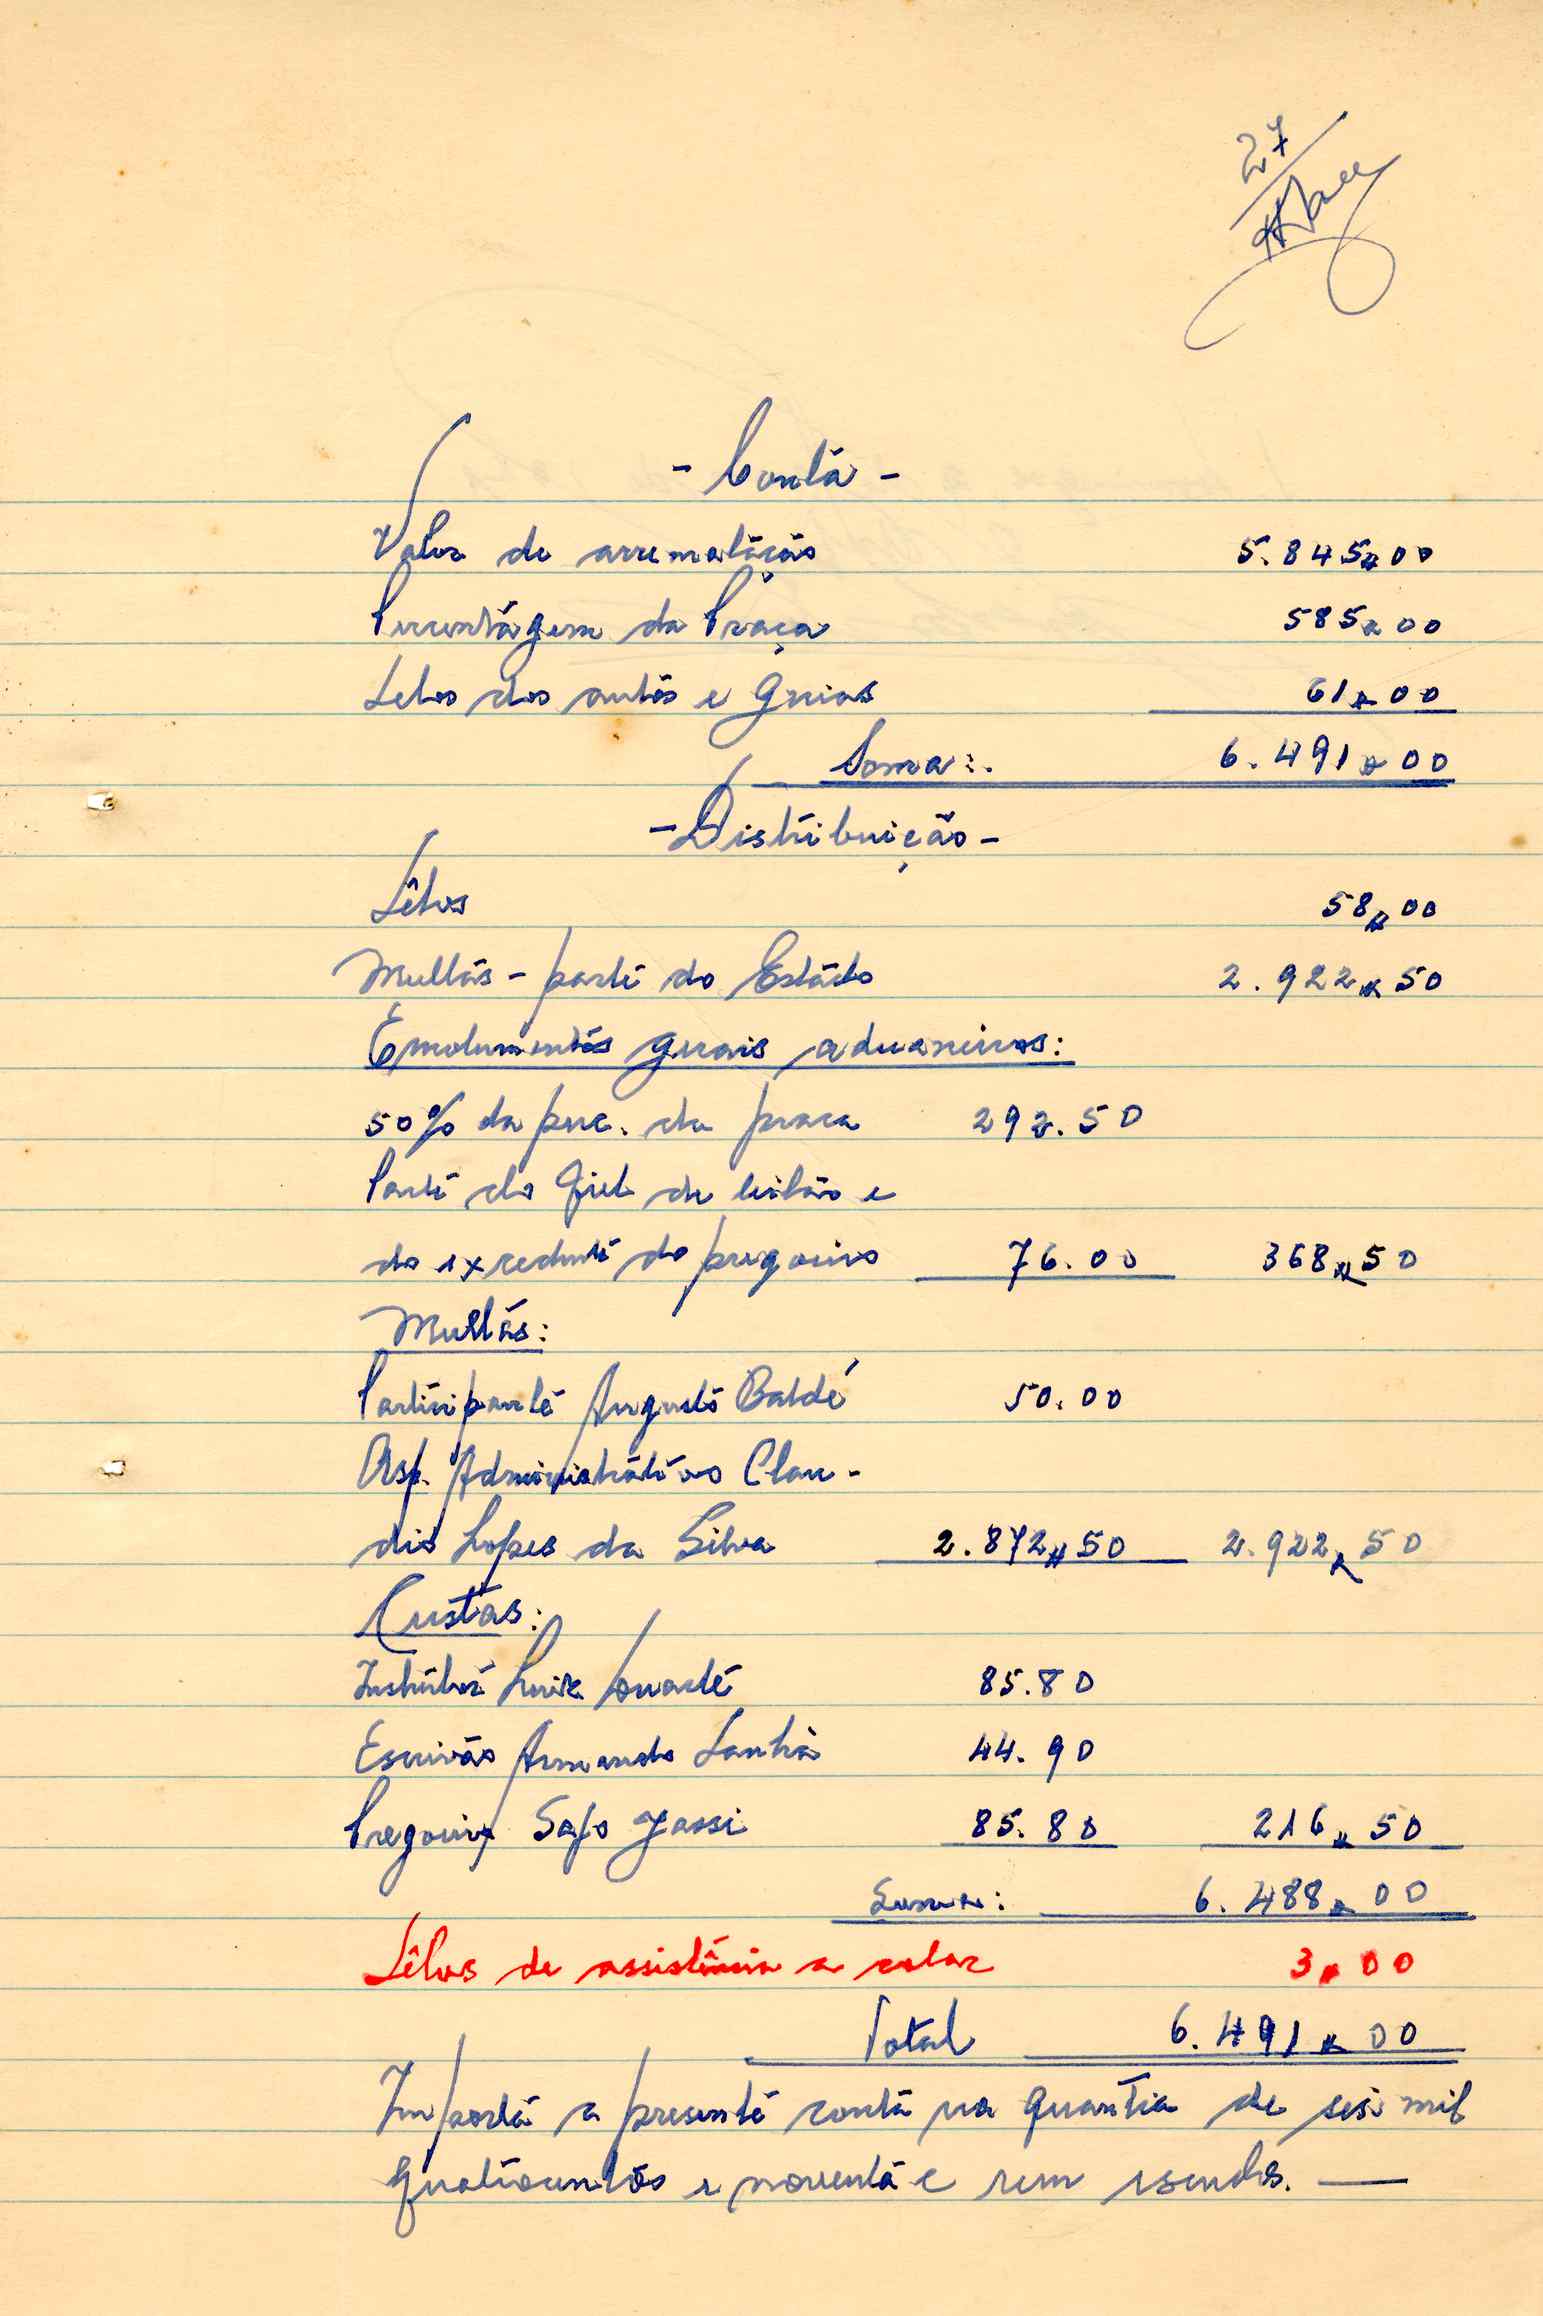 27
- Conta -
Valor de arrematação 5.845$00
Percentagem da Praça 585$00
Selos dos autos e guias 61$00
Soma:. 6.491$00
- Distribuição -
Sêlos 58$00
Multas - parte do Estado 2.922$50
Emolumentos gerais aduaneiros:
50% da perc. da praca 292.50
Parte do fiel de leilão e
do excedente do pregoeiro 76.00 368$50
Multas:
Participante Augusto Baldé 50.00
Asp. Administrativo Clau-
dio Lopes da Silva 2.872$50 2.922$50
Custas:
Instrutor Luiz Duarte 85.80
Escrivão Armando 44.90
Pregoeiro Safo Jassi 85.80 216$50
Soma: 6.488$00
Sêlos de assistência a colar 3$00
Total 6.491$00
Importa a presente conta na quantia de seis mil
quatrocentos e noventa e um escudos. —